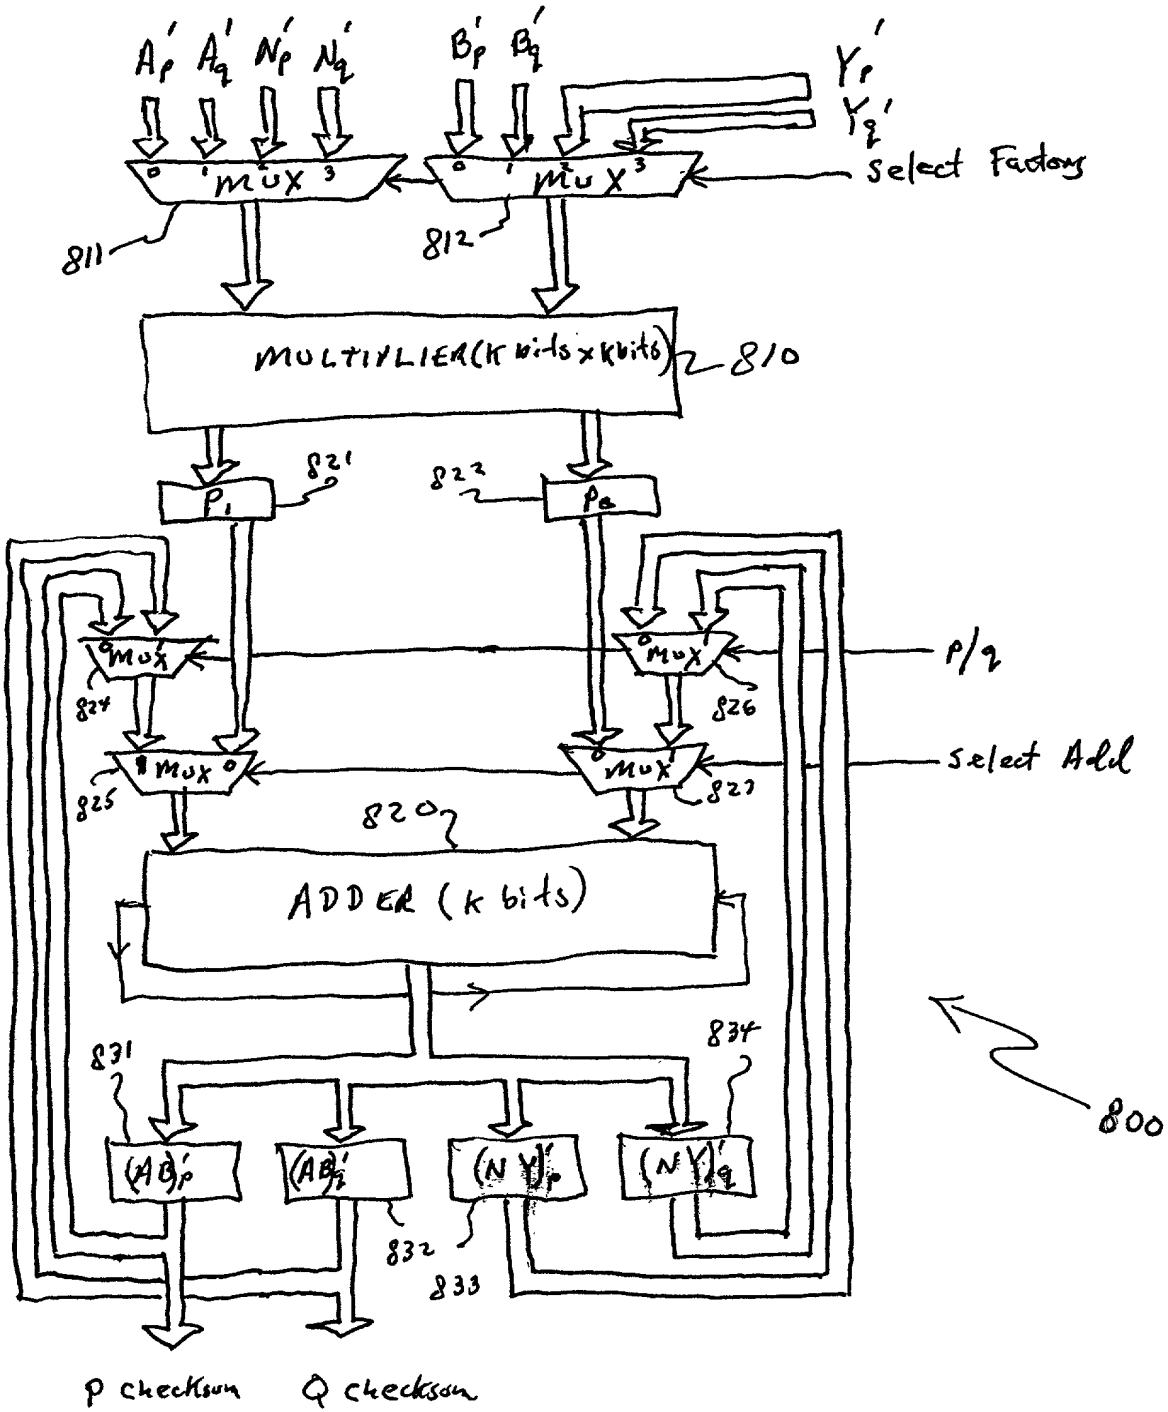 A'p A'q N'p N'q B'p B'q Y'p
Y'q
0 1 2 3 0 1 2 3
MUX MUX select Factors
811 812
MULTIPLIER (K bits x K bits) 810
821 822
P1 P0
0 1 0 1
MUX MUX P/q
824 826
1 0 0 1
MUX MUX select Add
825 827
820
ADDER (K bits)
831 834
800
(AB)'p (AB)'q (N Y)'p (N Y)'q
832
833
P checksum Q checksum